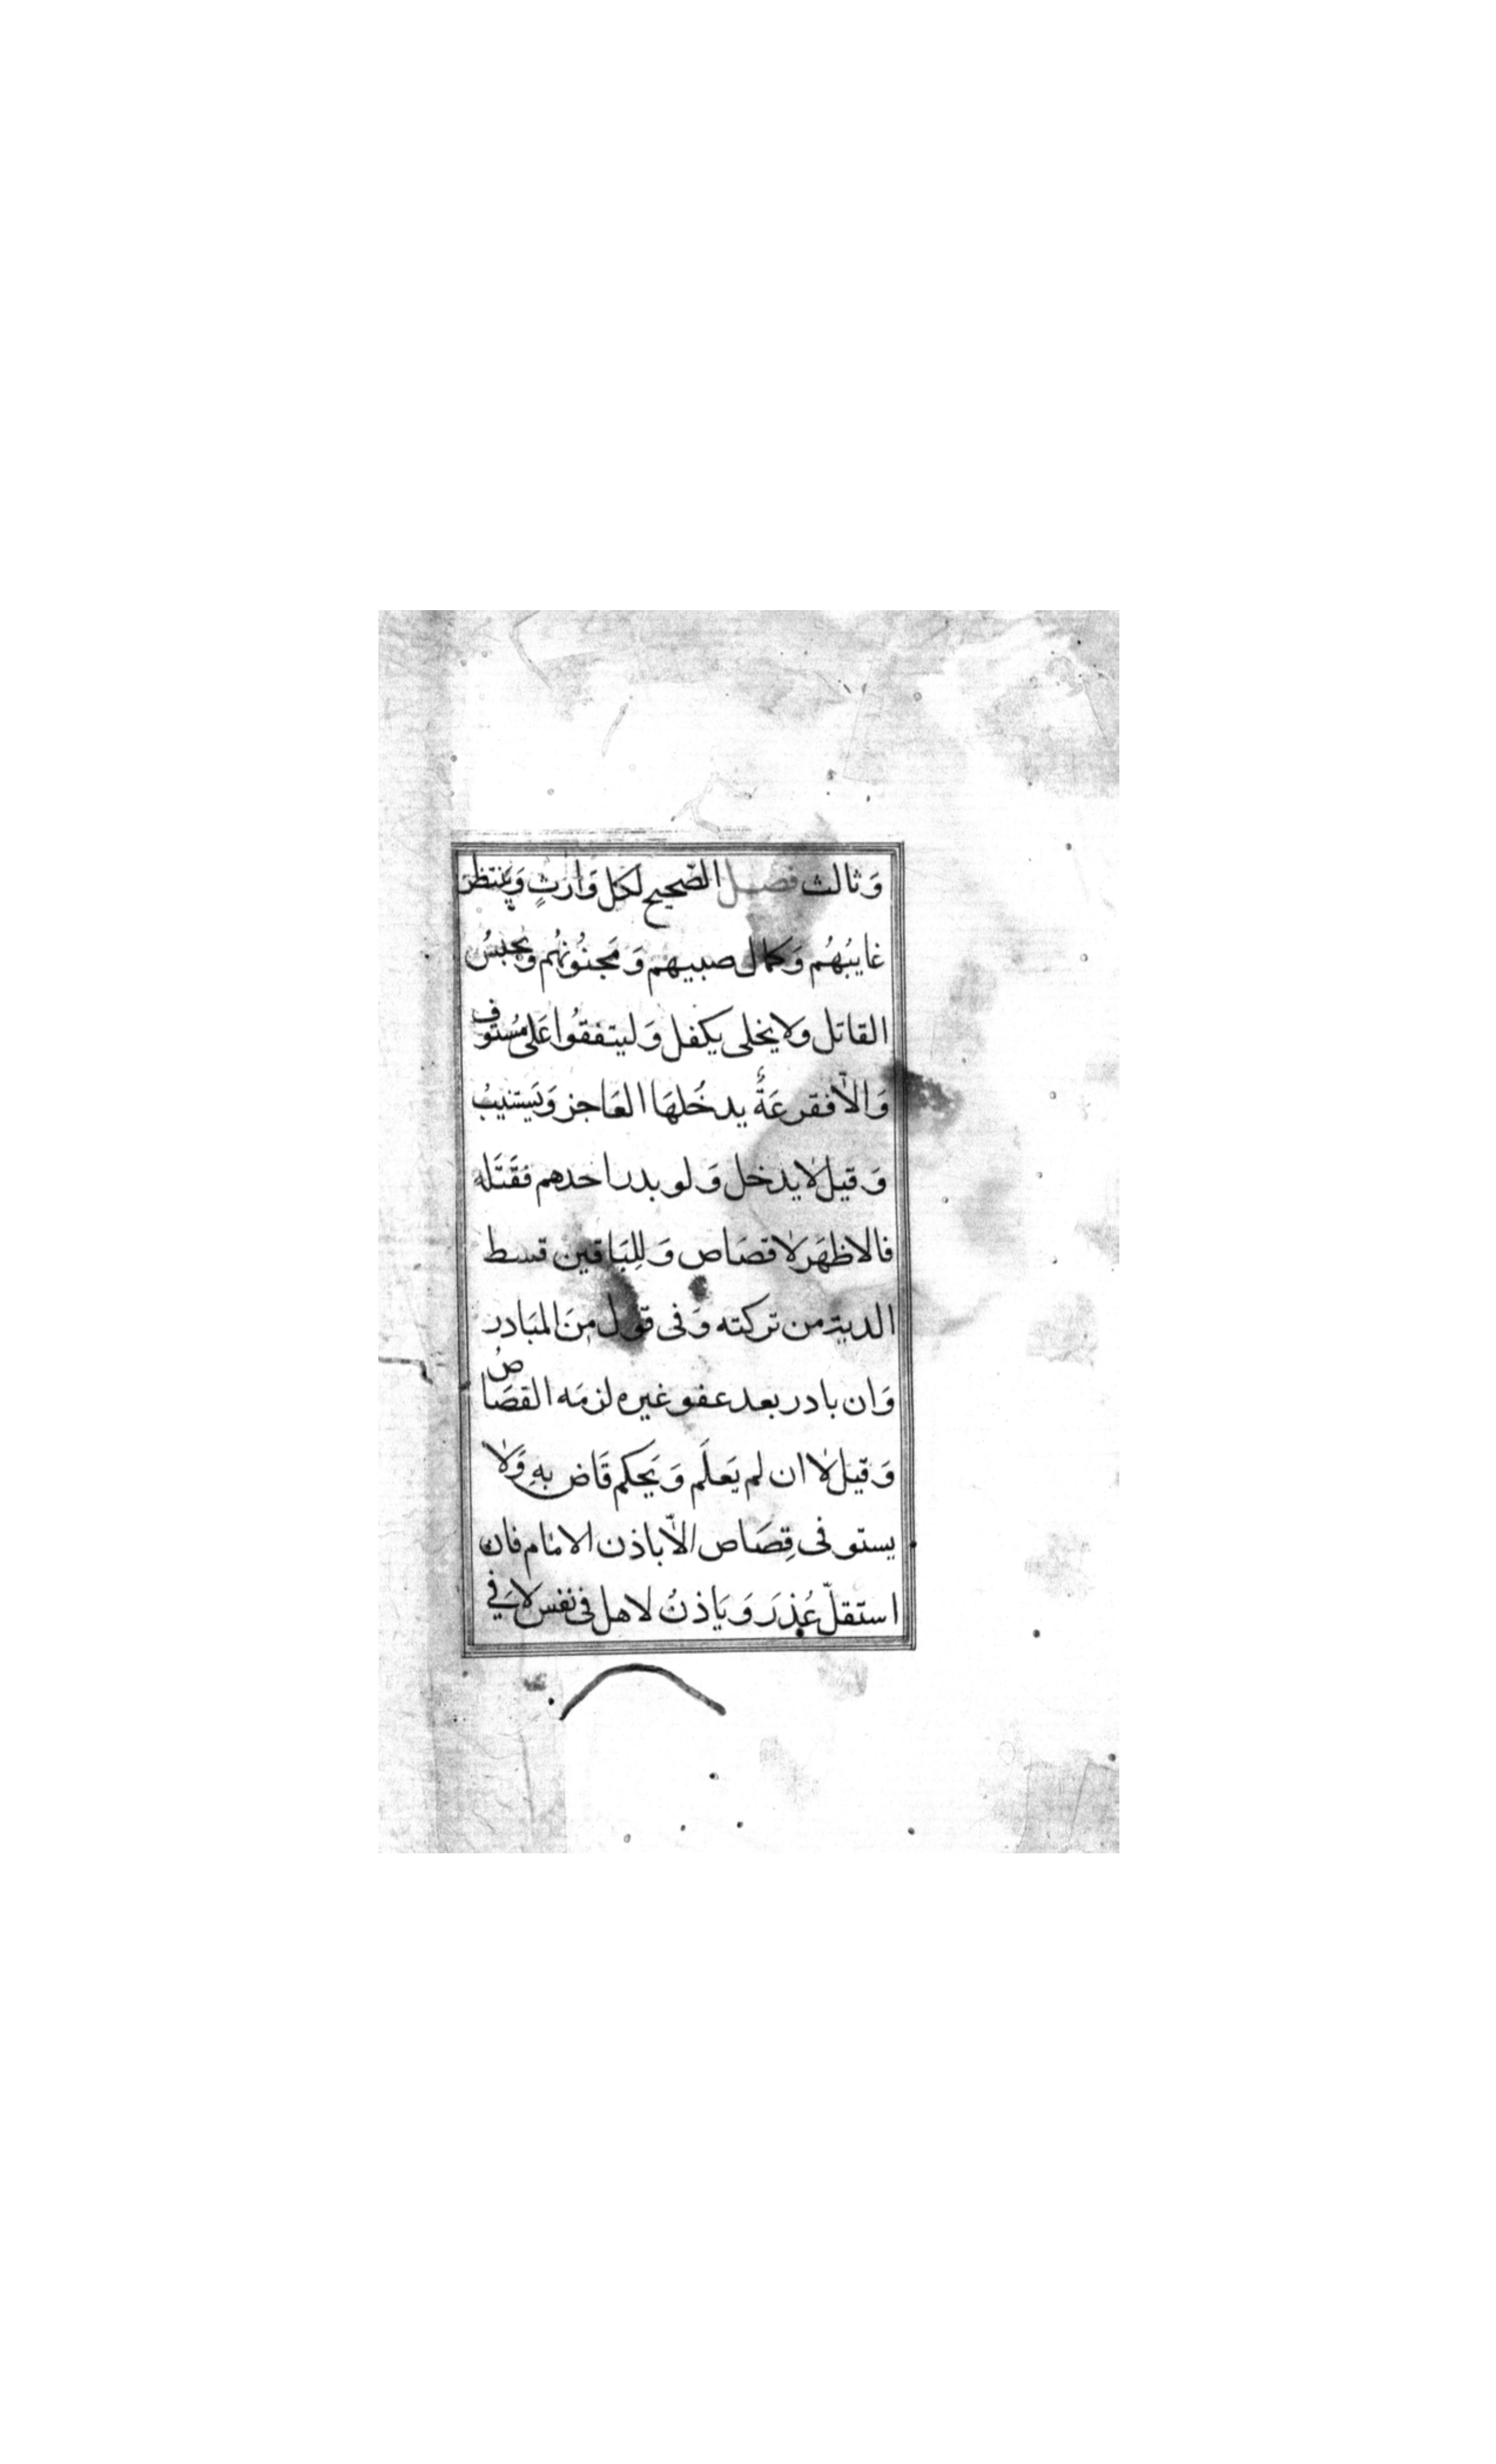 وَثالث فصل الصّحيح لكل وَارثٍ وَينتظر
غايبُهُم وَكمال صبيهم وَمَجنُونهُم وَيحبسُ
القاتل ولا يخلى يكفل وَليتفقُوا عَلى مُستوفٍ
وَالاّ فقرعَةٌ يدخُلهَا العَاجز وَيَستنيبُ
وَقيل لا يدخل وَلو بدر احدهم فقَتَله
فالاظهَر لا قصَاص وَللِبَاقين قسط
الدية من تركته وَفى قول مِنَ المبَادر
وَان بادر بعد عفو غيره لزمَه القصَاصُ
وَقيل لا ان لم يَعلَم وَيَحكم قَاض بهِ وَلا
يستوفى قِصَاص الاّ باذن الامَام فان
استقلّ عُذِرَ وَيَاذنُ لاهل فى نفس لا فِي